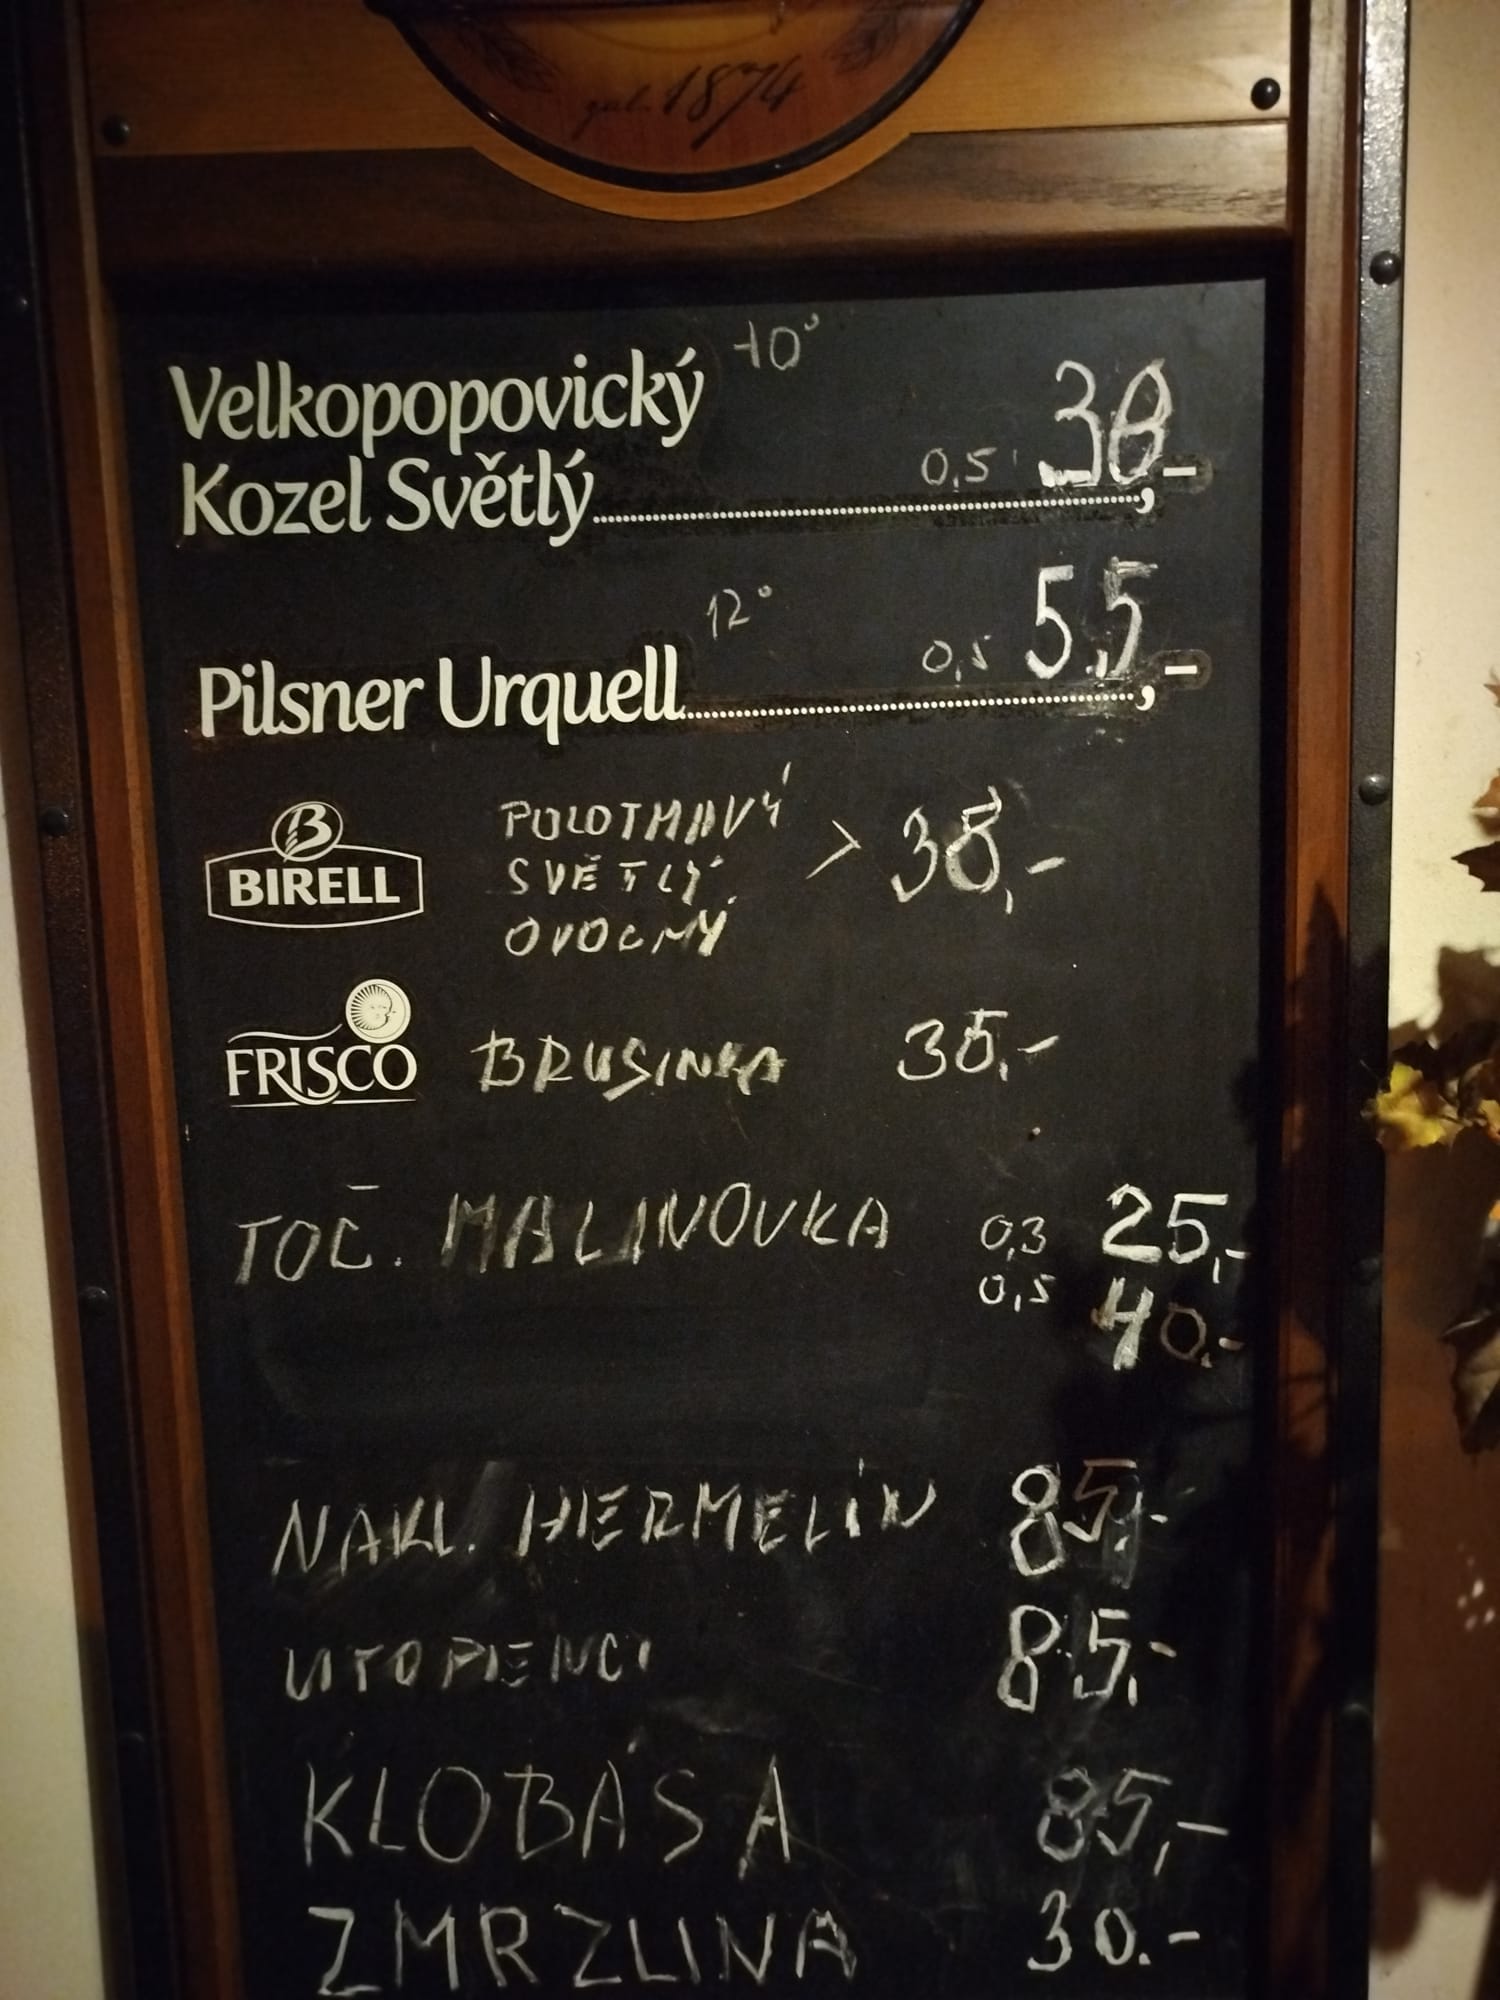 gal. 1874
Velkopopovický 10°
Kozel Světlý 0,5 38,-
Pilsner Urquell 12° 0,5 55,-
B
BIRELL
POLOTMAVÝ
SVĚTLÝ > 38,-
OVOCNÝ
FRISCO BRUSINKA 35,-
TOČ. MALINOVKA 0,3 25,-
0,5 40.-
NAKL. HERMELÍN 85,-
UTOPENCI 85,-
KLOBÁSA 85,-
ZMRZLINA 30.-